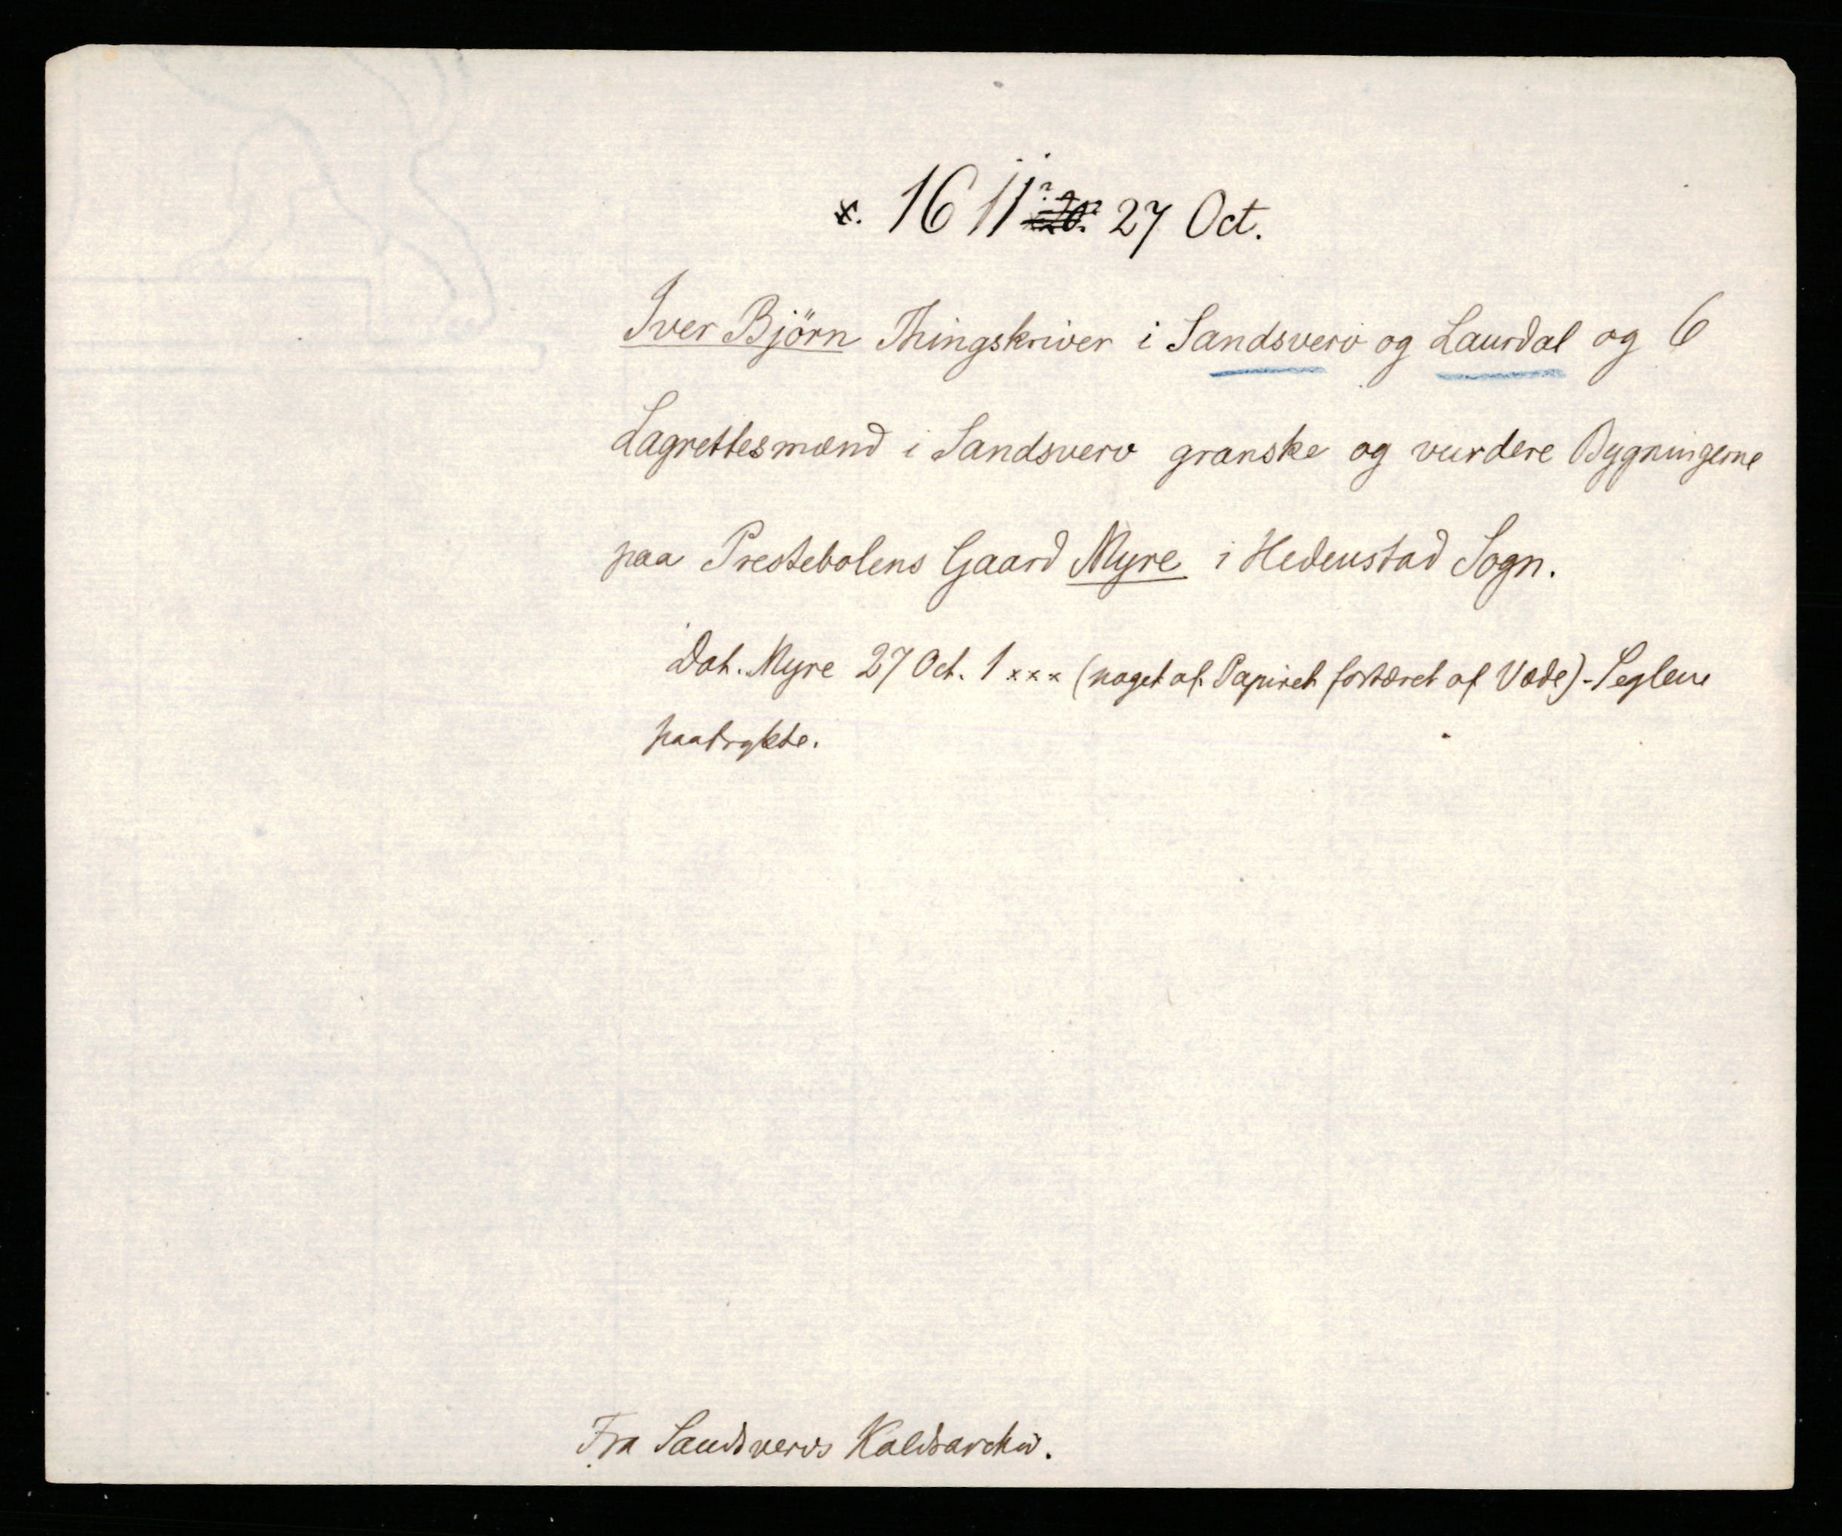 x. 16 11? 27 Oct.
Iver Björn Thingskriver i Sandsverv og Laurdal og 6
Lagrettesmænd i Sandsverv granske og vurdere Bygningerne
paa Prestebolens Gaard Myre i Hedenstad Sogn.
Dat. Myre 27 Oct. 1 xxx (noget af Papiret fortæret af Væde). Seglene
paatrykte.
Fra Sandsvervs Kaldsarchiv.